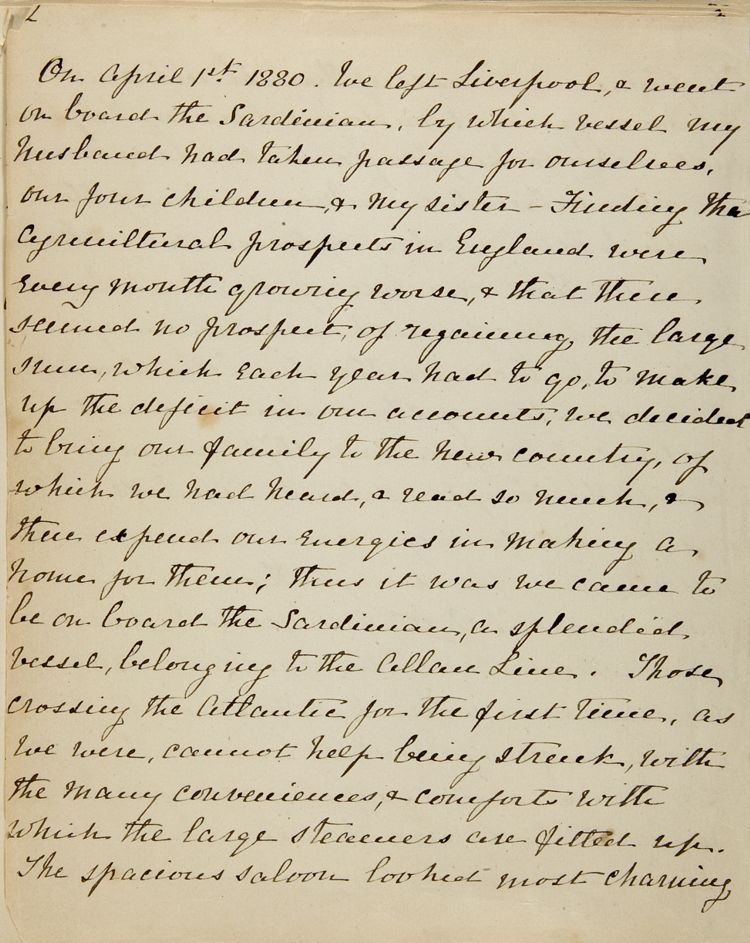 On April 1st 1880. We left Liverpool, & went
on board the Sardinian, by which vessel my
husband had taken passage for ourselves,
our four children, & my sister – Finding the
agricultural prospects in England were
every month growing worse, & that there
seemed no prospect, of regaining the large
sum, which each year had to go, to make
up the deficit in our accounts, we decided
to bring our family to the new country, of
which we had heard, & read so much, &
there expend our energies in making a
home for them; thus it was we came to
be on board the Sardinian, a splendid
vessel, belonging to the Allan Line. Those
crossing the Atlantic for the first time, as
we were, cannot help being struck, with
the many conveniences, & comforts with
which the large steamers are fitted up.
The spacious saloon looked most charming